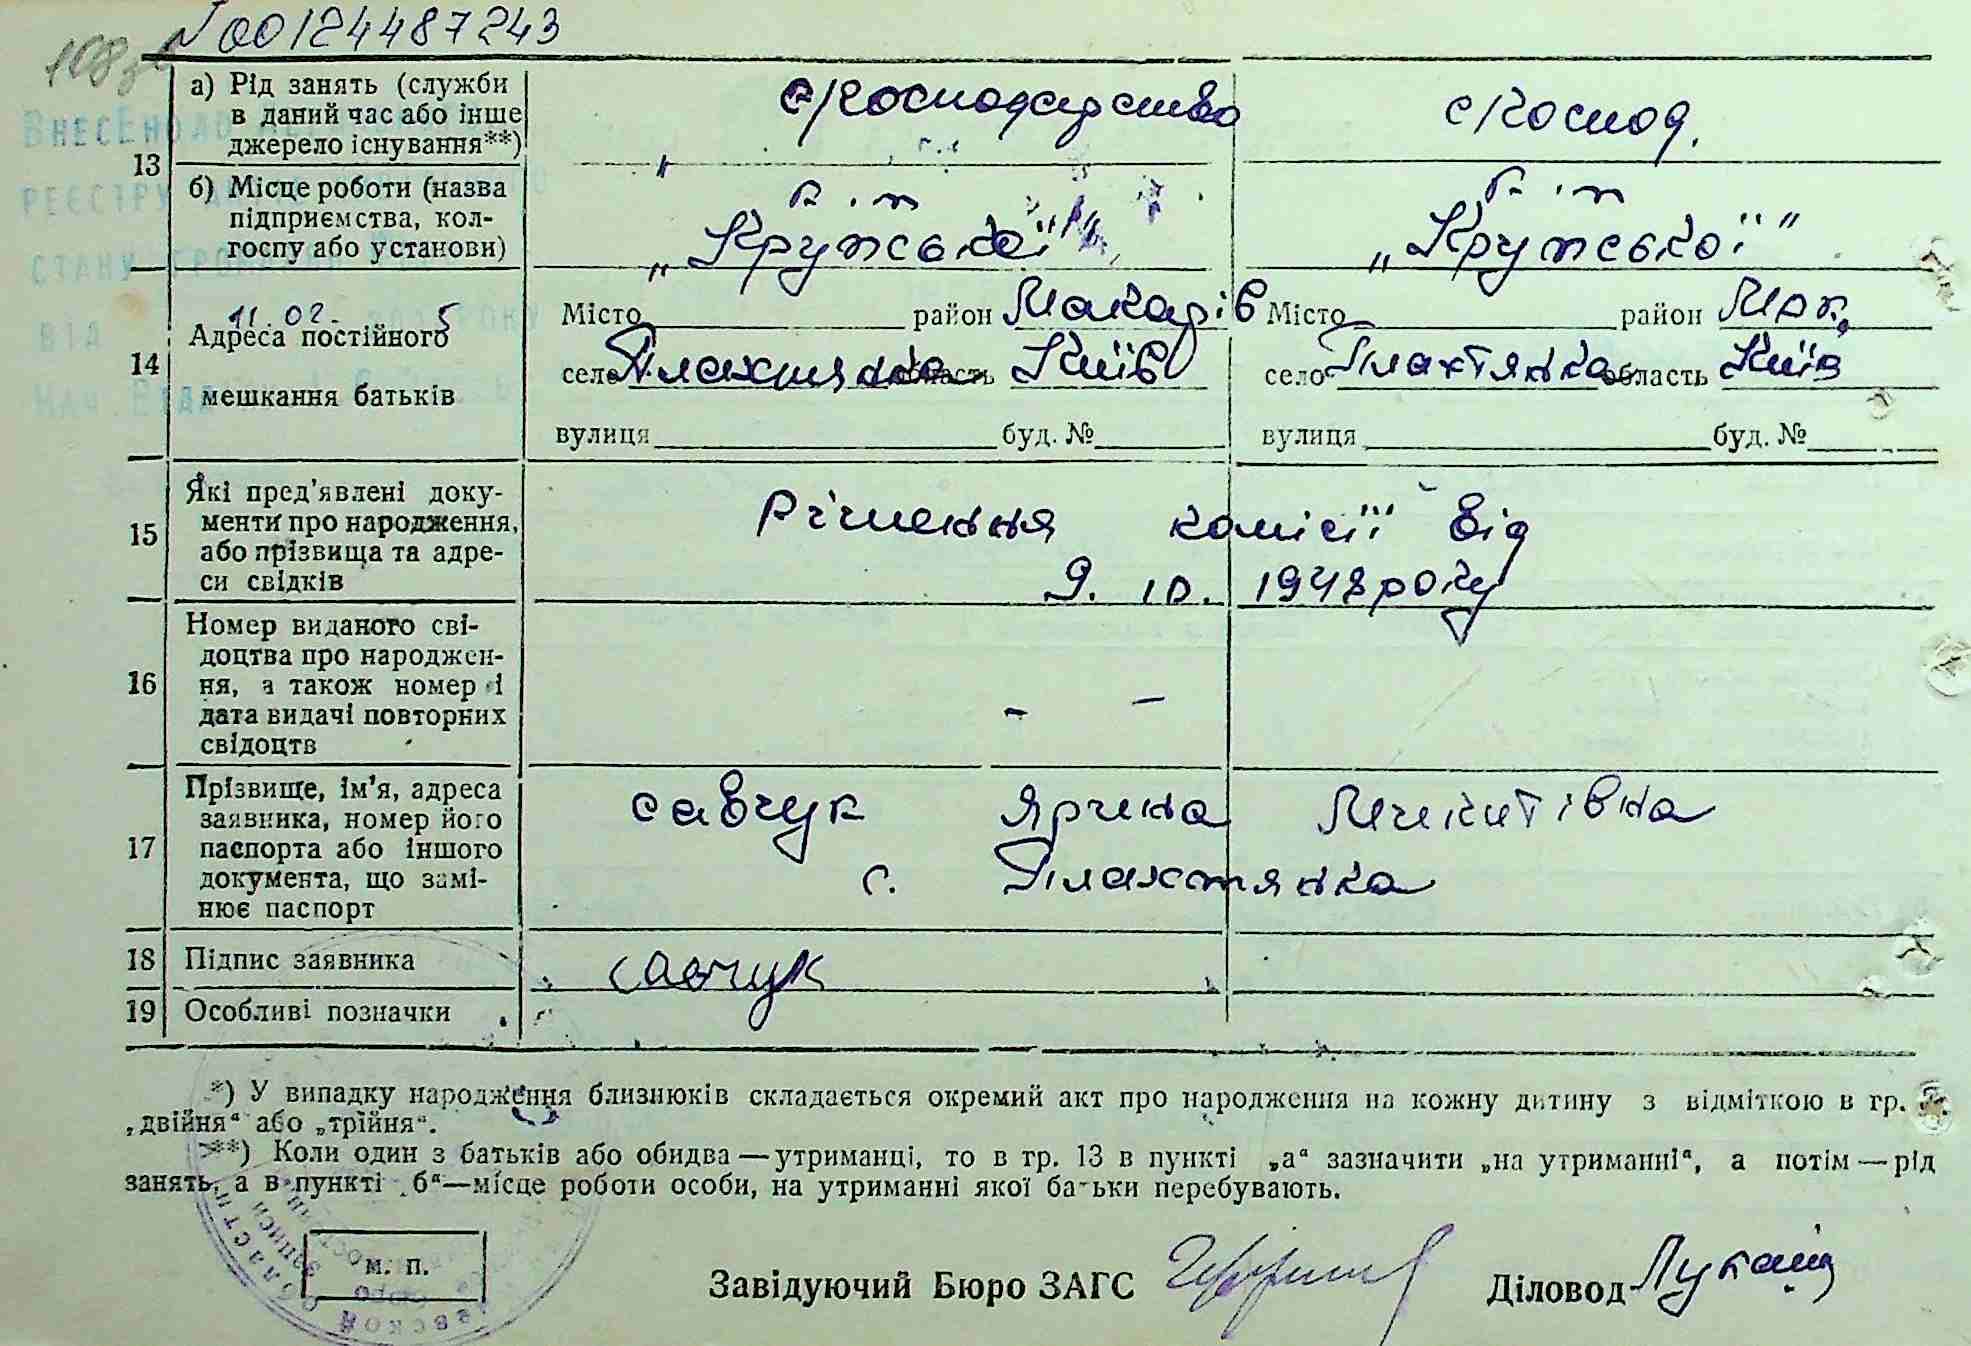 00124487243
108
ВнесЕно до
реєстру актів
стану громадян
від 11.02.
13 а) Рід занять (служби в даний час або інше джерело існування**)
с/господарство с/господ.
б) Місце роботи (назва підприємства, колгоспу або установи)
к-іп к-іп
„Крупської" „Крупської"
14 Адреса постійного мешкання батьків
Місто район Макарів Місто район Мак.
село Плахтянка область Київ село Плахтянка область Київ
вулиця буд. № вулиця буд. №
15 Які пред'явлені доку-
менти про народження,
або прізвища та адре-
си свідків
Рішення комісії від
9. 10. 1948 року
16 Номер виданого сві-
доцтва про народжен-
ня, а також номер і
дата видачі повторних
свідоцтв
- -
17 Прізвище, ім'я, адреса
заявника, номер його
паспорта або іншого
документа, що замі-
нює паспорт
Савчук Ярина Микитівна
с. Плахтянка
18 Підпис заявника Савчук
19 Особливі позначки
*) У випадку народження близнюків складається окремий акт про народження на кожну дитину з відміткою в гр.
„двійня" або „трійня".
**) Коли один з батьків або обидва — утриманці, то в гр. 13 в пункті „а" зазначити „на утриманні", а потім — рід
занять, а в пункті „б" — місце роботи особи, на утриманні якої батьки перебувають.
м. п.
Завідуючий Бюро ЗАГС Діловод